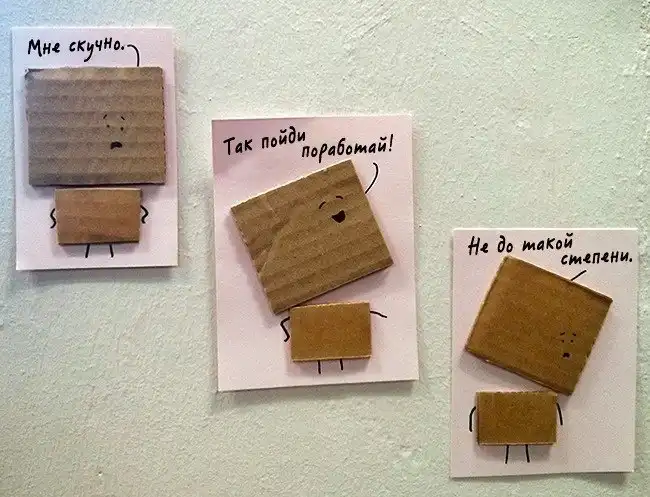 Мне скучно.
Так пойди
поработай!
Не до такой
степени.